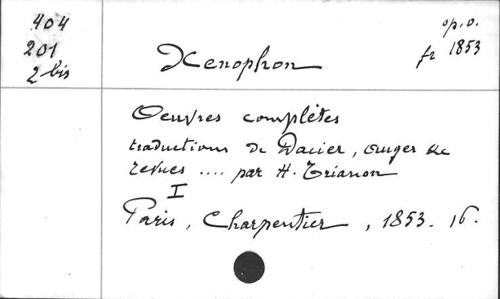 404
201
2 bis
Xenophon
op.o.
fr 1853
Oeuvres complètes
traductions de Dacier, Auger &c
revues .... par H. Trianon
I
Paris, Charpentier, 1853. 16.